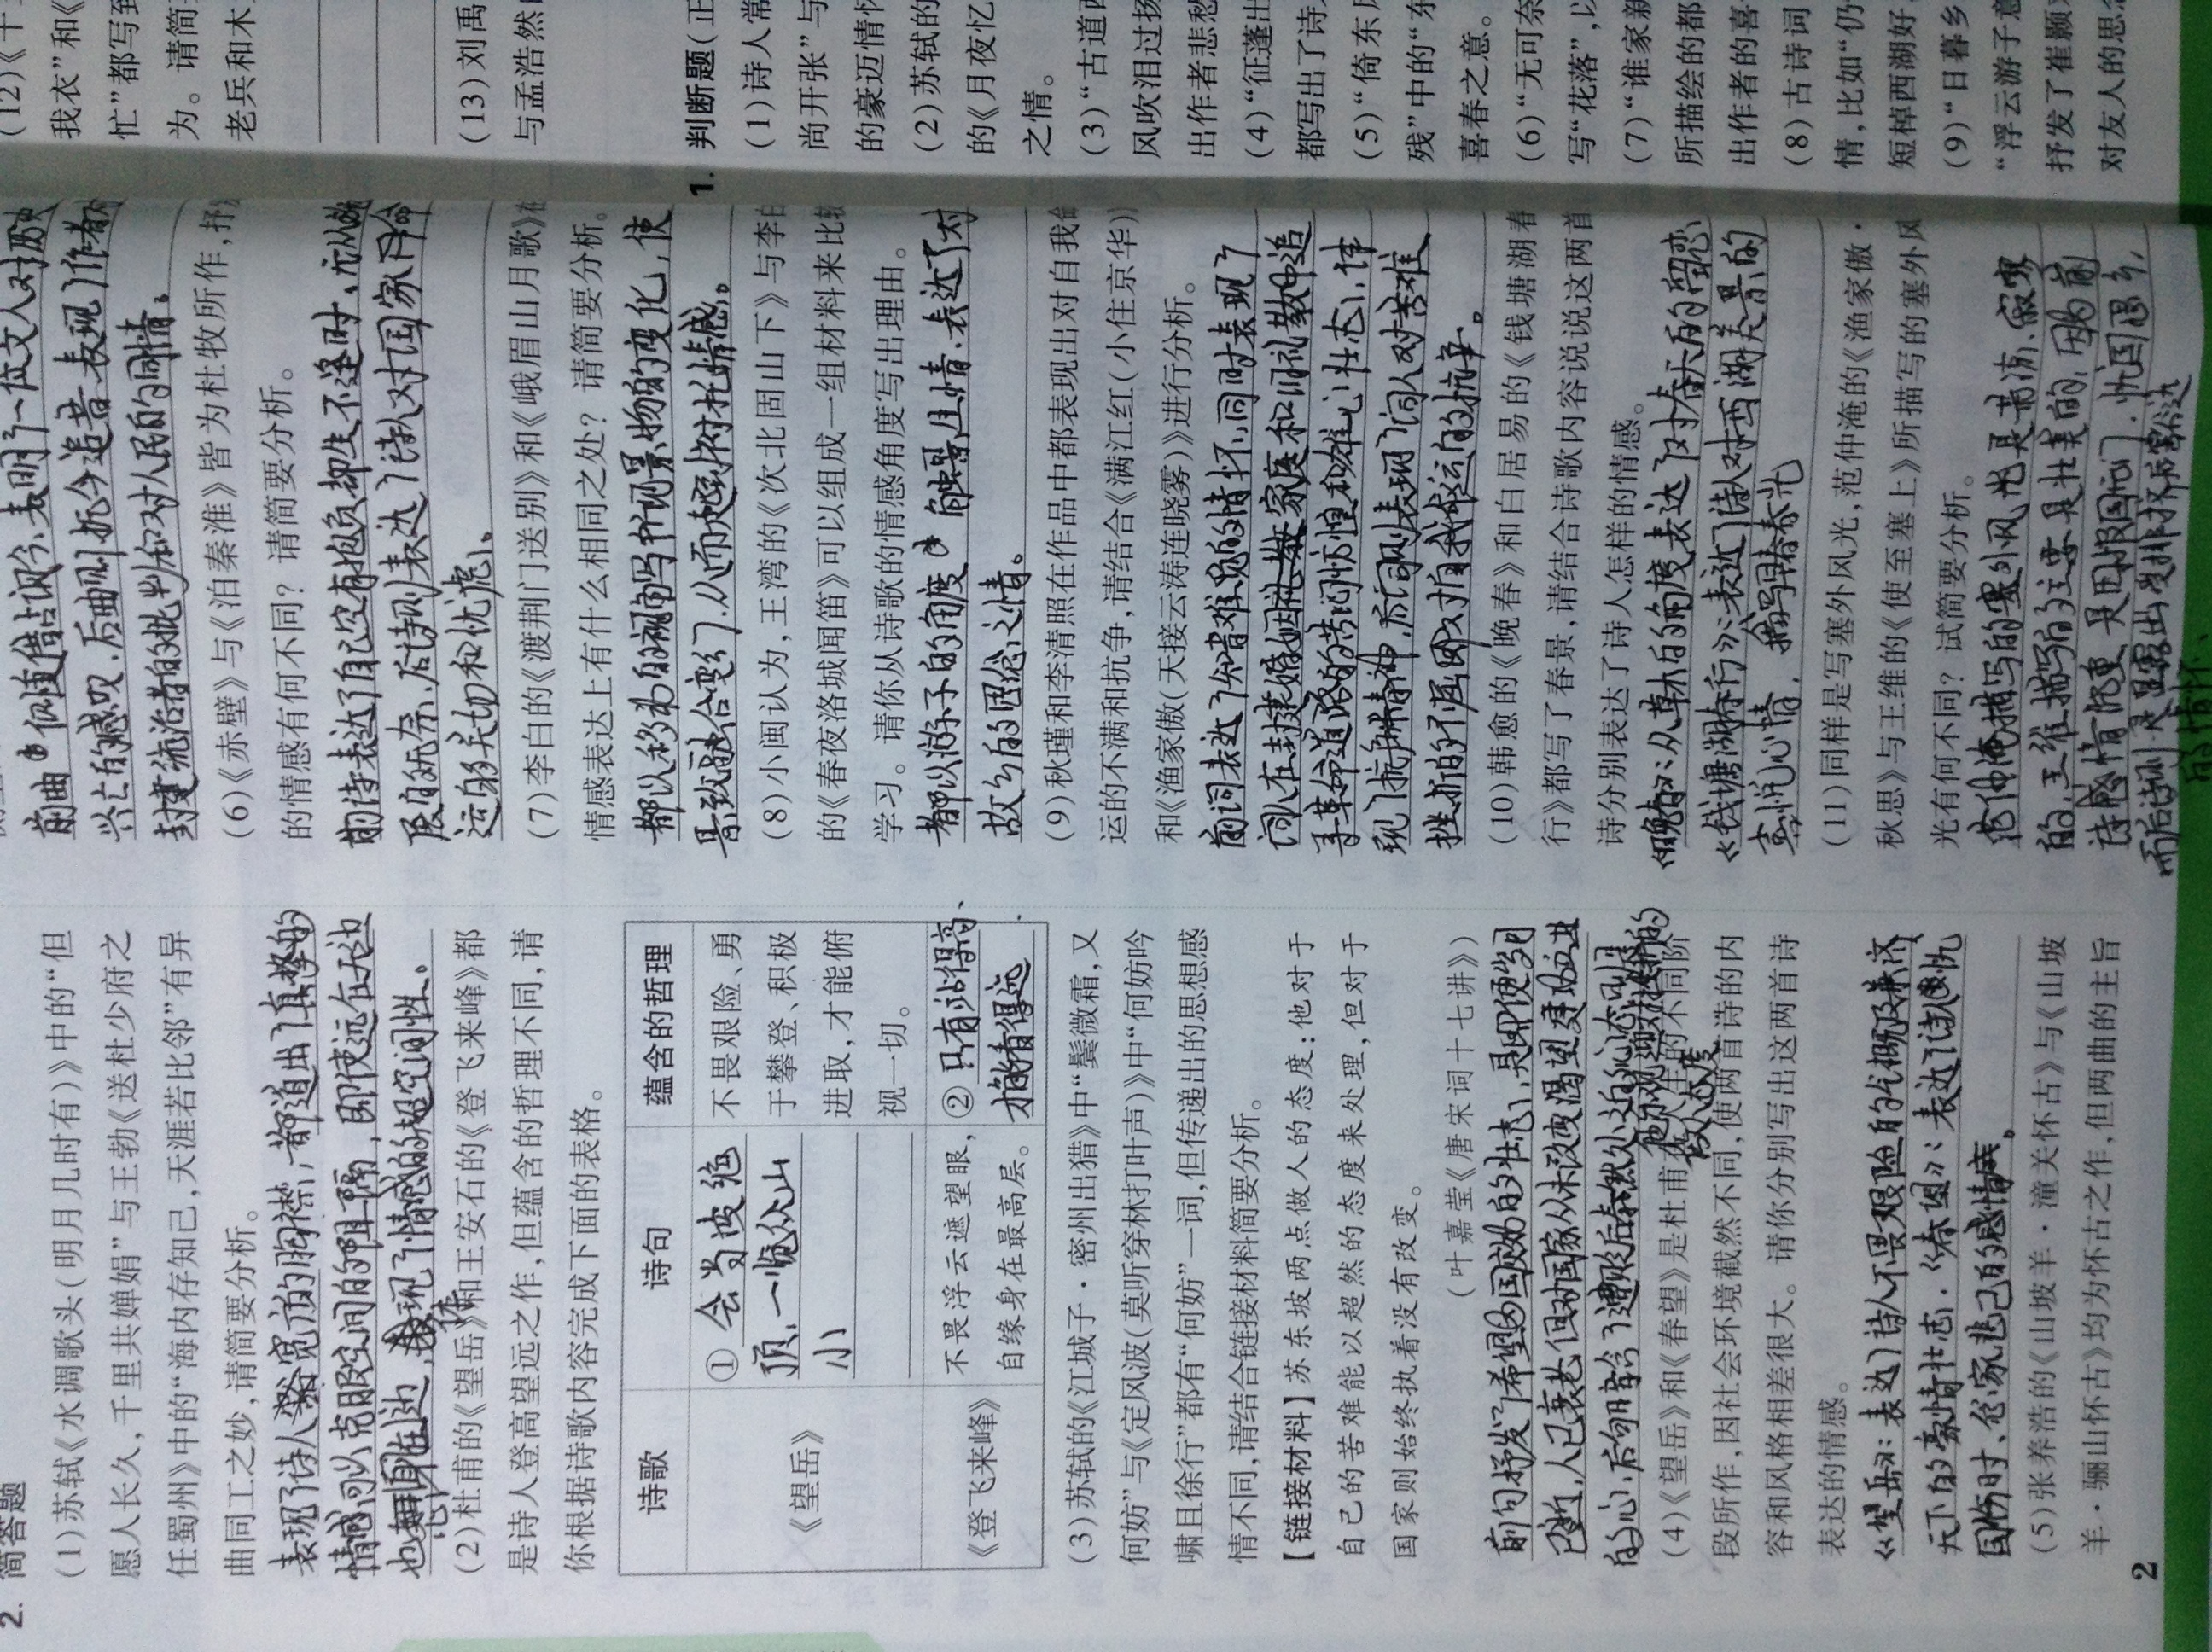 2. 简答题
(1)苏轼《水调歌头(明月几时有)》中的“但
愿人长久,千里共婵娟”与王勃《送杜少府之
任蜀州》中的“海内存知己,天涯若比邻”有异
曲同工之妙,请简要分析。
表现了诗人宽广的胸襟,都道出了真挚的
情感可以克服空间的阻隔,即使远在天边
也想身在边,表现了情感的超空间性。
(2)杜甫的《望岳》和王安石的《登飞来峰》都
作
是诗人登高望远之作,但蕴含的哲理不同,请
你根据诗歌内容完成下面的表格。
诗歌 诗句 蕴含的哲理
《望岳》
① 会当凌绝
顶,一览众山
小
不畏艰险、勇
于攀登、积极
进取,才能俯
视一切。
《登飞来峰》
不畏浮云遮望眼,
自缘身在最高层。
② 只有站得高、
才能看得远
(3)苏轼的《江城子·密州出猎》中“鬓微霜,又
何妨”与《定风波(莫听穿林打叶声)》中“何妨吟
啸且徐行”都有“何妨”一词,但传递出的思想感
情不同,请结合链接材料简要分析。
【链接材料】苏东坡两点做人的态度:他对于
自己的苦难能以超然的态度来处理,但对于
国家则始终执着没有改变。
(叶嘉莹《唐宋词十七讲》)
前句抒发了希望为国效力的壮志,是即便岁月
已逝,人已衰老但对国家从未改变渴望建功立业
的心,后句暗含了遭贬后泰然处之的心态,则是
他乐观面对挫折的
做人态度
(4)《望岳》和《春望》是杜甫在人生的不同阶
段所作,因社会环境截然不同,使两首诗的内
容和风格相差很大。请你分别写出这两首诗
表达的情感。
《望岳》:表达了诗人不畏艰险的气概及兼济
天下的豪情壮志.《春望》:表达了诗人忧
国伤时、念家悲己的感情。
(5)张养浩的《山坡羊·潼关怀古》与《山坡
羊·骊山怀古》均为怀古之作,但两曲的主旨
2
前曲 借古讽今,表明了一位文人对历史
兴亡的感叹.后曲则抚今追昔,表现了作者对
封建统治者的批判和对人民的同情。
(6)《赤壁》与《泊秦淮》皆为杜牧所作,抒发
的情感有何不同? 请简要分析。
前诗表达了自己空有抱负却生不逢时,无从施
展的无奈,后诗则表达了诗人对国家命
运的关切和忧虑。
(7)李白的《渡荆门送别》和《峨眉山月歌》在
情感表达上有什么相同之处? 请简要分析。
都以移动的视角写出景物的变化,使
景致融合变幻,从而起到衬托情感。
(8)小闽认为,王湾的《次北固山下》与李白
的《春夜洛城闻笛》可以组成一组材料来比较
学习。请你从诗歌的情感角度写出理由。
都以游子的角度 触景生情,表达了对
故乡的思念之情。
(9)秋瑾和李清照在作品中都表现出对自我命
运的不满和抗争,请结合《满江红(小住京华)》
和《渔家傲(天接云涛连晓雾)》进行分析。
前词表达了知音难觅的情怀,同时表现了
词人在封建婚姻家庭和旧礼教中追
寻革命道路的苦闷彷徨和雄心壮志,体
现了抗争精神,后词则表现了词人对苦难
挫折的不屈即对自我命运的抗争。
(10)韩愈的《晚春》和白居易的《钱塘湖春
行》都写了春景,请结合诗歌内容说说这两首
诗分别表达了诗人怎样的情感。
《晚春》:从草木的角度表达了对春天的留恋
《钱塘湖春行》:表达了诗人对西湖美景的
喜悦心情, 描写早春春光
(11)同样是写塞外风光,范仲淹的《渔家傲·
秋思》与王维的《使至塞上》所描写的塞外风
光有何不同? 试简要分析。
范仲淹描写的塞外风光是萧凉、寂寥
的,王维描写的主要是壮美的,因为前
诗感情沉重 是因报国无门,忧国思乡,
而后诗则是显露出受排挤后
的情怀、
(12)《十
我衣”和《
忙”都写到
为。请简
老兵和木
(13)刘禹
与孟浩然
1. 判断题(正
(1)诗人常
尚开张”与
的豪迈情怀
(2)苏轼的
的《月夜忆
之情。
(3)“古道西
风吹泪过扬
出作者悲愁
(4)“征蓬出
都写出了诗
(5)“倚东风
残”中的“东
喜春之意。
(6)“无可奈
写“花落”,以
(7)“谁家新
所描绘的都
出作者的喜
(8)古诗词
情,比如“仍
短棹西湖好
(9)“日暮乡
“浮云游子意
抒发了崔颢
对友人的思念